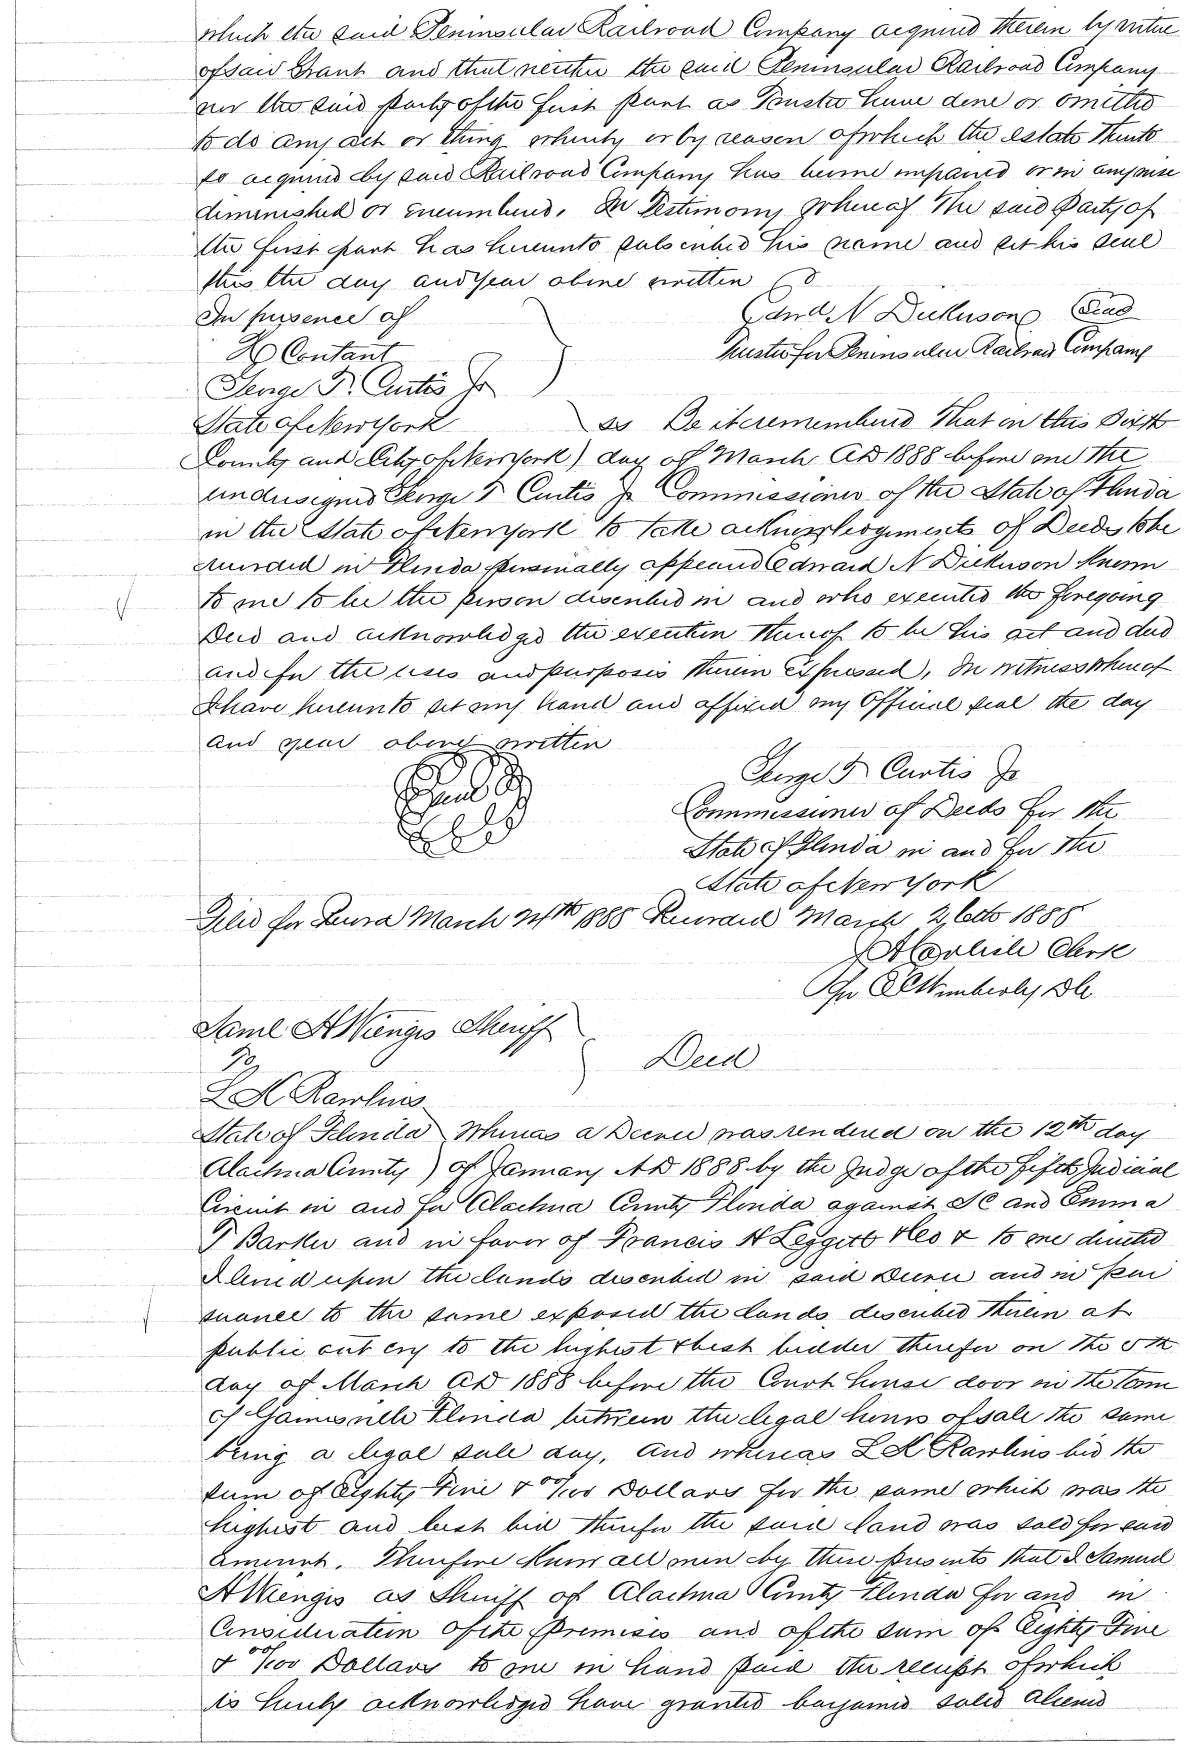 which the said Peninsular Railroad Company acquired therein by virtue
of said Grant and that neither the said Peninsular Railroad Company
nor the said party of the first part as Trustee have done or omitted
to do any act or thing whereby or by reason of which the estate thereto
so acquired by said Railroad Company has become impaired or in anywise
diminished or encumbered. In Testimony Whereof The said Party of
the first part has hereunto subscribed his name and set his seal
this the day and year above written
In presence of
Edwd N Dickerson Seal
H Contant
Trustee for Peninsular Railroad Company
George T. Curtis Jr
State of New York ss Be it remembered That on this Sixth
County and City of New York) day of March AD 1888 before me the
undersigned George T Curtis Jr Commissioner of the State of Florida
in the State of New York to take acknowledgments of Deeds to be
recorded in Florida personally appeared Edward N Dickerson known
to me to be the person described in and who executed the foregoing
Deed and acknowledged the execution thereof to be his act and deed
and for the uses and purposes therein expressed, In witness whereof
I have hereunto set my hand and affixed my Official seal the day
and year above written
Seal
George T Curtis Jr
Commissioner of Deeds for the
State of Florida in and for the
State of New York
Filed for Record March 24th 1888 Recorded March 26th 1888
Clerk
Wimberly DC
Saml H Wienges Sheriff
To
Deed
L K Rawlins
State of Florida Whereas a Decree was rendered on the 12th day
Alachua County ) of January AD 1888 by the Judge of the fifth Judicial
Circuit in and for Alachua County Florida against S C and Emma
T Barker and in favor of Francis H Leggett & Co & to me directed
I levied upon the lands described in said Decree and in pur
suance to the same exposed the lands described therein at
public out cry to the highest & best bidder therefor on the 5th
day of March AD 1888 before the Court house door in the Town
of Gainesville Florida between the legal hours of sale the same
being a legal sale day, and whereas L K Rawlins bid the
sum of Eighty Five & 00/100 Dollars for the same which was the
highest and best bid therefor the said land was sold for said
amount. Therefore Know all men by these presents that I Samuel
H Wienges as Sheriff of Alachua County Florida for and in
Consideration of the Premises and of the sum of Eighty Five
& 00/100 Dollars to me in hand paid the receipt of which
is hereby acknowledged have granted bargained solid aliened